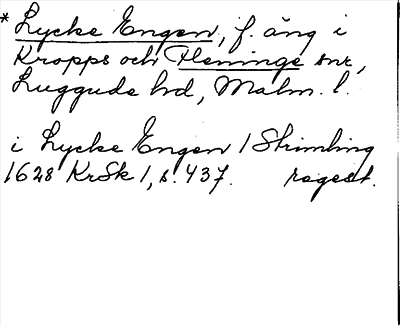 * Lycke Engen, f. äng i
Kropps och Fleninge snr,
Luggude hd, Malm. l.
i Lycke Engen 1 Strimling
1628 KrSk 1, s. 437. regest.